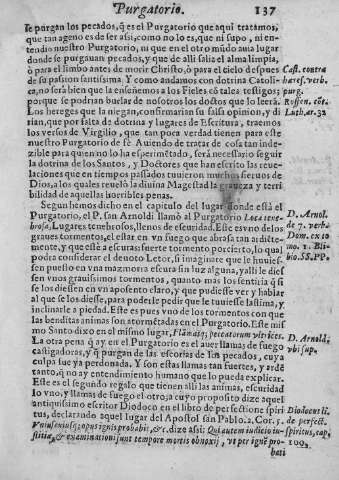 Purgatorio. 137
se purgan los pecados, q̃ es el Purgatorio que aqui tratamos,
que tan ageno es de ser assi, como no lo es, que ni supo, ni en-
tendio nuestro Purgatorio, ni que en el otro mũdo auia lugar
donde se purgauan pecados, y que de alli salia el alma limpia,
ò para el limbo antes de morir Christo, ò para el cielo despues
de su passion santissima. Y como andamos con dotrina Catoli-
ca, no serà bien que la enseñemos a los Fieles cõ tales testigos;
porque se podrian burlar de nosotros los doctos que lo leerã.
Los hereges que la niegan, confirmarian su falsa opinion, y di
rian, que por falta de dotrina y lugares de Escritura, traemos
los versos de Virgilio, que tan poca verdad tienen para este
nuestro Purgatorio de fè. Auiendo de tratar de cosa tan inde-
zible para quien no lo ha esperimẽtado, serà necessario seguir
la dotrina de los Santos, y Doctores que han escrito las reue-
laciones que en tiempos passados tuuieron muchos sieruos de
Dios, a los quales reuelò la diuina Magestad la y terri
bilidad de aquellas horribles penas.
Segun hemos dicho en el capitulo del lugar donde està el
Purgatorio, el P. san Arnoldi llamò al Purgatorio Loca tene-
brosa, Lugares tenebrosos, llenos de escuridad. Este es vno de los
graues tormentos, el estar en vn fuego que abrasa tan ardiẽte-
mente, y que estè a escuras fuerte tormento por cierto, lo qual
podra considerar el deuoto Letor, si imagina que le huuies-
sen puesto en vna mazmorra escura sin luz alguna, y alli le dies
sen vnos grauissimos tormentos, quanto mas los sentiria q̃ si
se los diessen en vn aposento claro, y que pudiesse ver y hablar
al que se los diesse, para poderle pedir que le tuuiesse lastima, y
inclinarle a piedad. Este es pues vno de los tormentos con que
las benditas animas son atormẽtadas en el Purgatorio. Este mis
mo Santo dixo en el mismo lugar, Flammas peccatorum vltrices.
La otra pena q̃ ay en el Purgatorio es auer llamas de fuego
castigadoras, y q̃ purgan de las escorias de los pecados, cuya
culpa fue ya perdonada. Y son estas llamas tan fuertes, y ardẽ
tanto, q̃ no ay entendimiento humano que lo pueda explicar.
Este es el segundo regalo que tienen alli las animas, escuridad
lo vno, y llamas de fuego el otro, a cuyo proposito dize aquel
antiquissimo escritor Diodoco en el libro de perfectione spiri
tus, declarando aquel lugar del Apostol san Pablo, 2. Cor. 5.
Vniuscuiusq; opus ignis probabit, &c. dize assi: Qui autem iudicio iu-
stitiæ, & examinationi sunt tempore mortis obnoxij, vt per ignẽ pro-
bati
Cast. contra
hæres. verb.
purg.
Roffen. cõt.
Luth. ar. 32
D. Arnol.
de 7. verb.
Dom. ex to
mo. 1. Bli-
bio. SS. PP.
D. Arnold.
vbi sup.
Diodocus li.
de perfect.
spiritus, cap.
100.